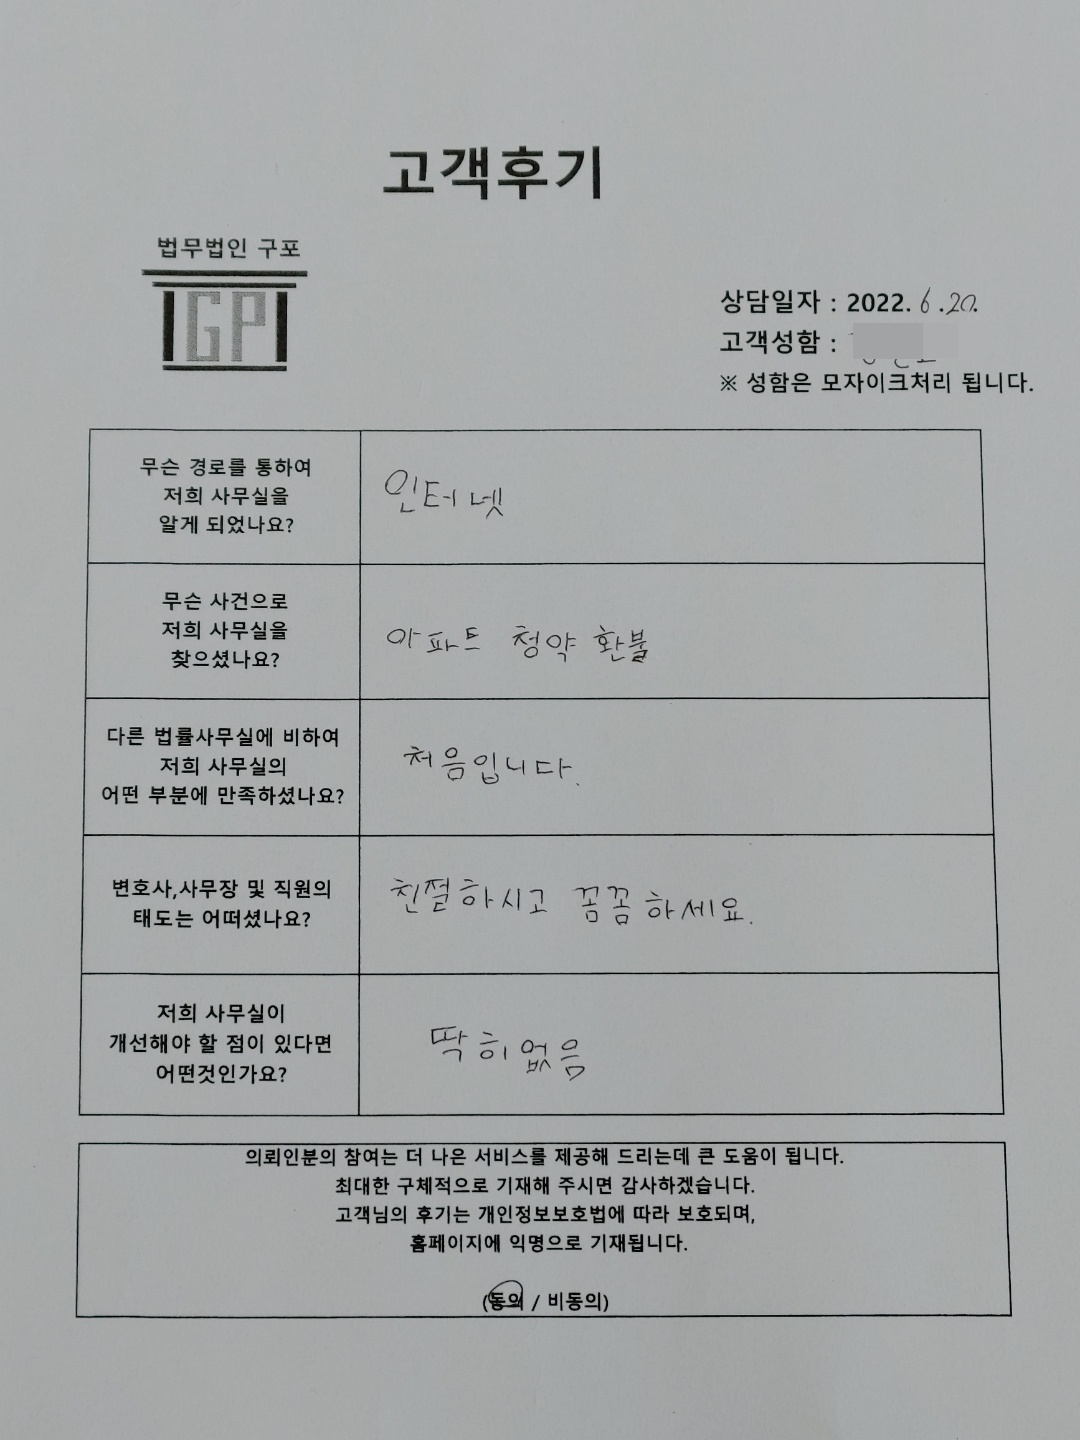 고객후기
법무법인 구포
GP
상담일자 : 2022. 6.20.
고객성함 :
※ 성함은 모자이크처리 됩니다.
무슨 경로를 통하여
저희 사무실을
알게 되었나요?
인터넷
무슨 사건으로
저희 사무실을
찾으셨나요?
아파트 청약 환불
다른 법률사무실에 비하여
저희 사무실의
어떤 부분에 만족하셨나요?
처음입니다.
변호사,사무장 및 직원의
태도는 어떠셨나요?
친절하시고 꼼꼼하세요.
저희 사무실이
개선해야 할 점이 있다면
어떤것인가요?
딱히없음
의뢰인분의 참여는 더 나은 서비스를 제공해 드리는데 큰 도움이 됩니다.
최대한 구체적으로 기재해 주시면 감사하겠습니다.
고객님의 후기는 개인정보보호법에 따라 보호되며,
홈페이지에 익명으로 기재됩니다.
(동의 / 비동의)